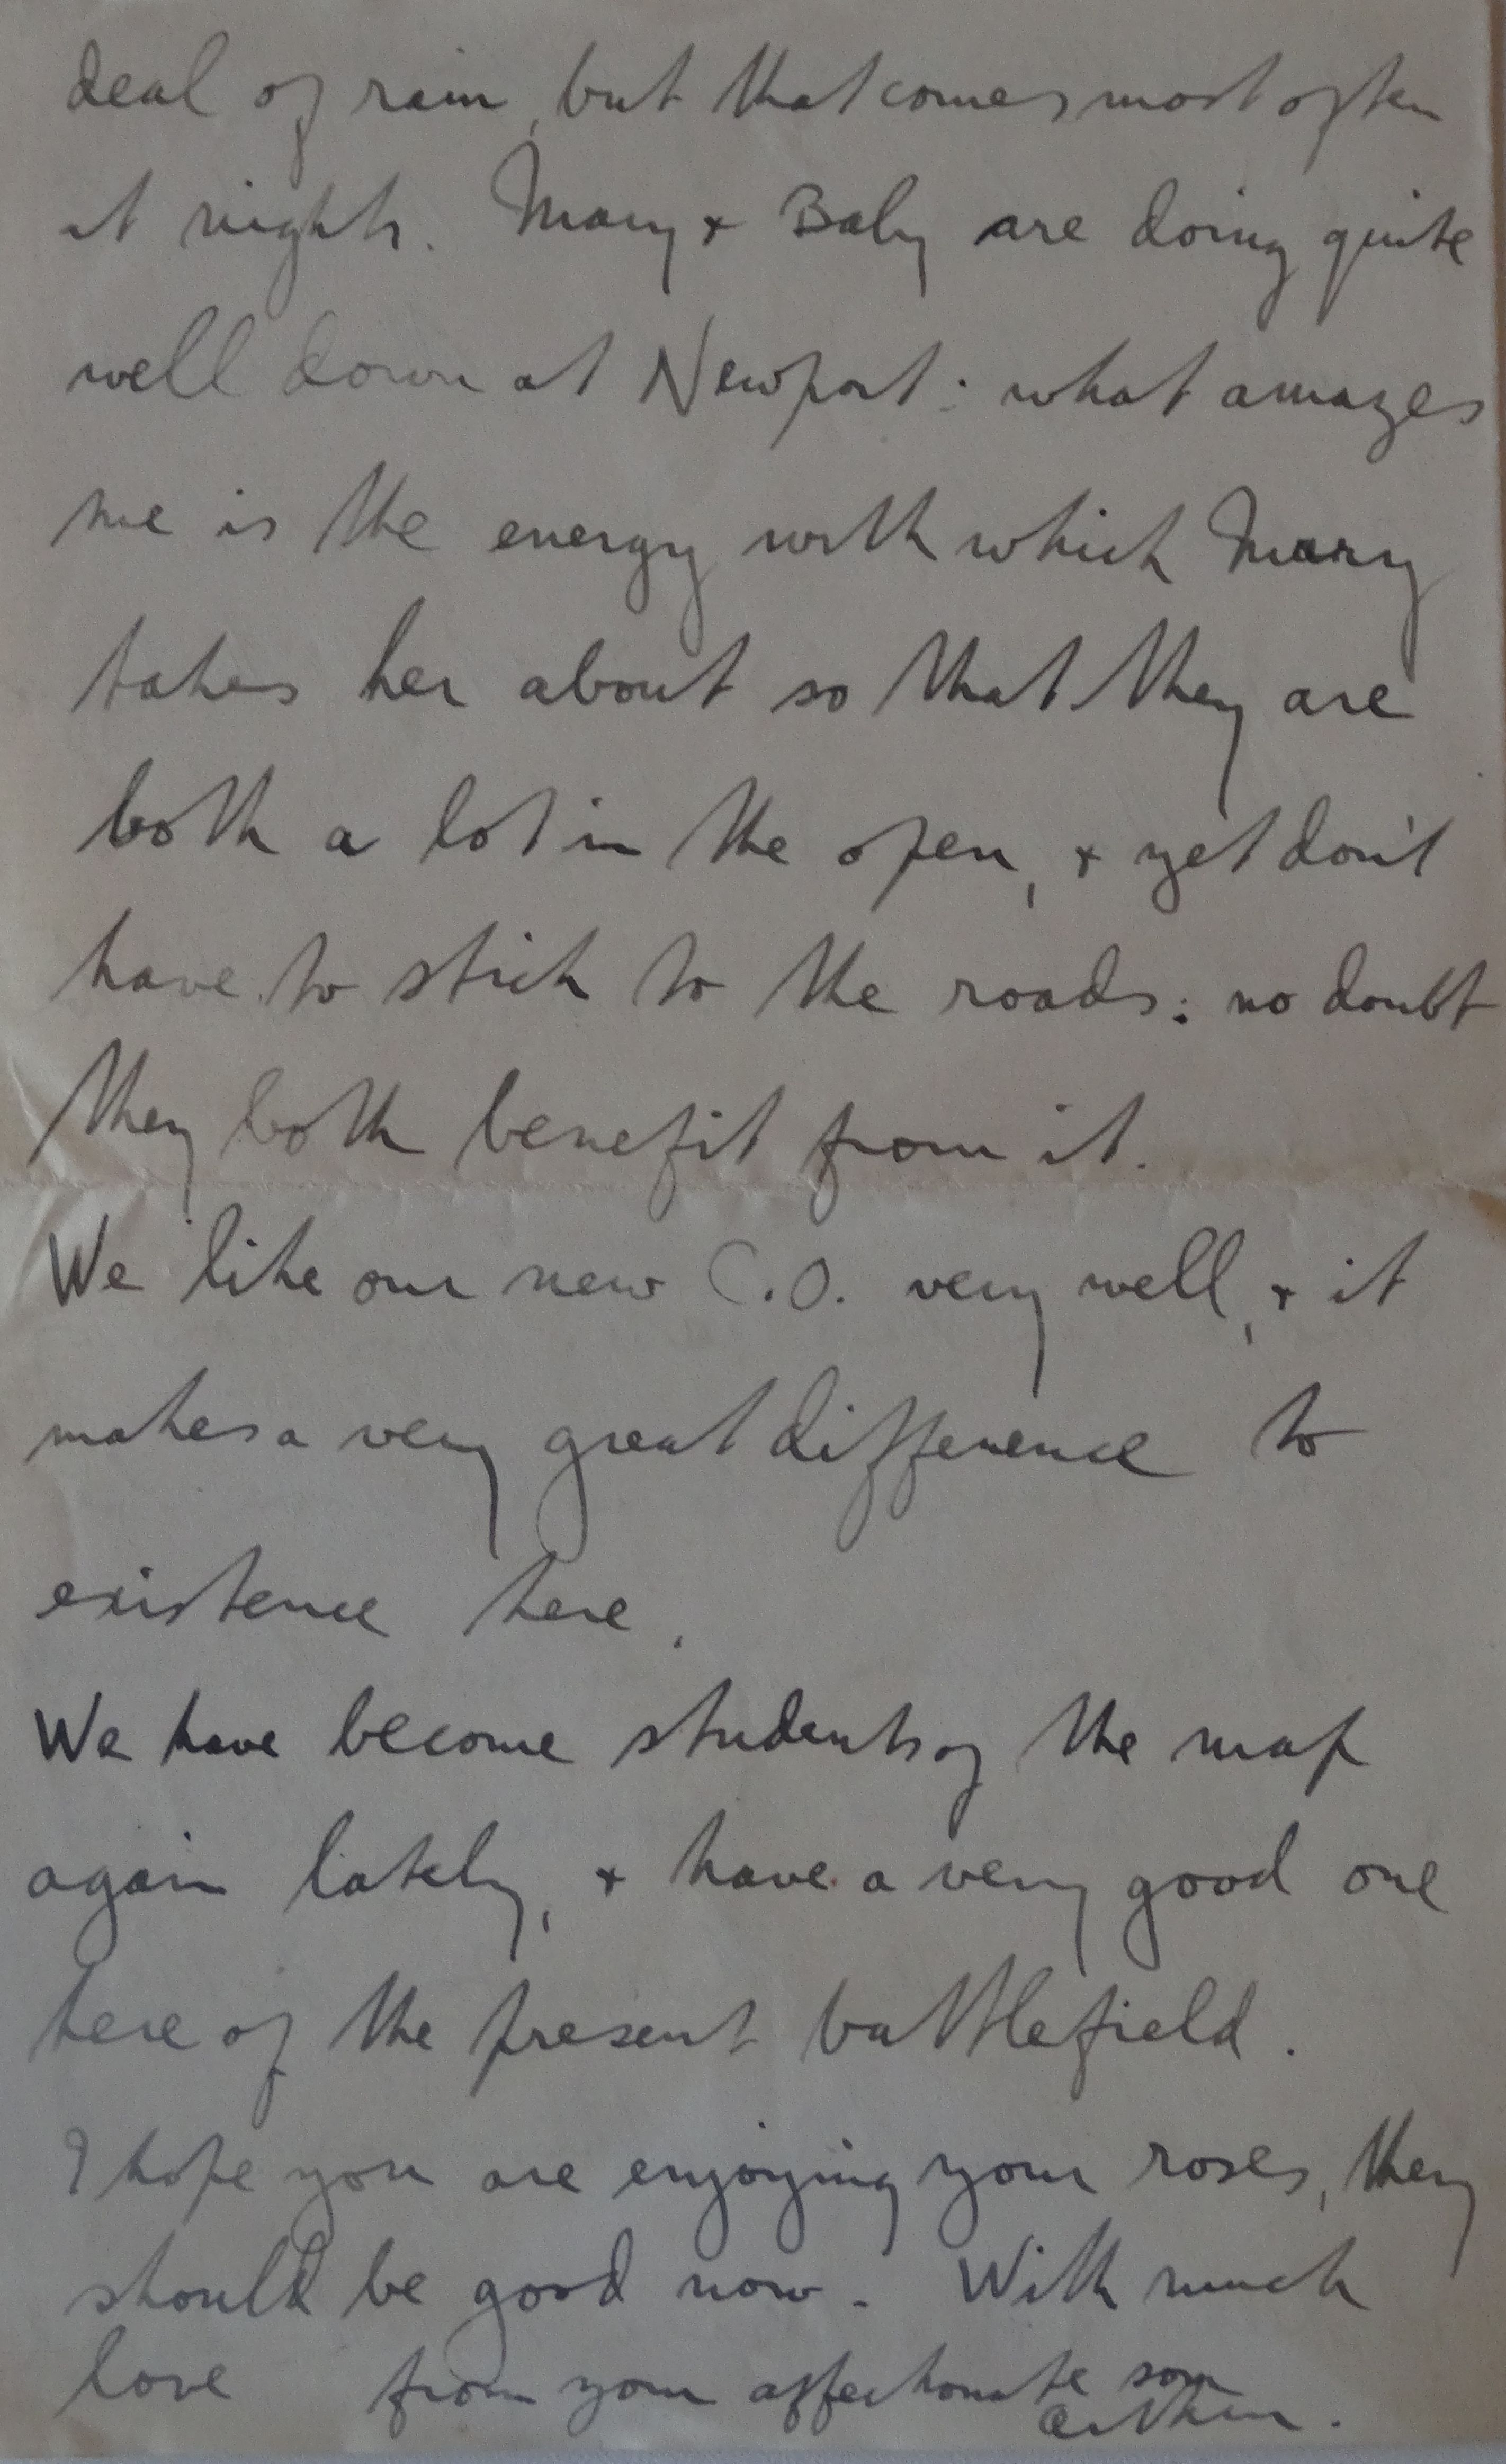 deal of rain, but that comes most often
at night. Mary & Baby are doing quite
well down at Newport: what amazes
me is the energy with which Mary
takes her about so that they are
both a lot in the open, & yet don't
have to stick to the roads: no doubt
they both benefit from it.
We like our new C.O. very well, & it
makes a very great difference to
existence here.
We have become students of the map
again lately, & have a very good one
here of the present battlefield.
I hope you are enjoying your roses, they
should be good now. With much
love from your affectionate son
Arthur.